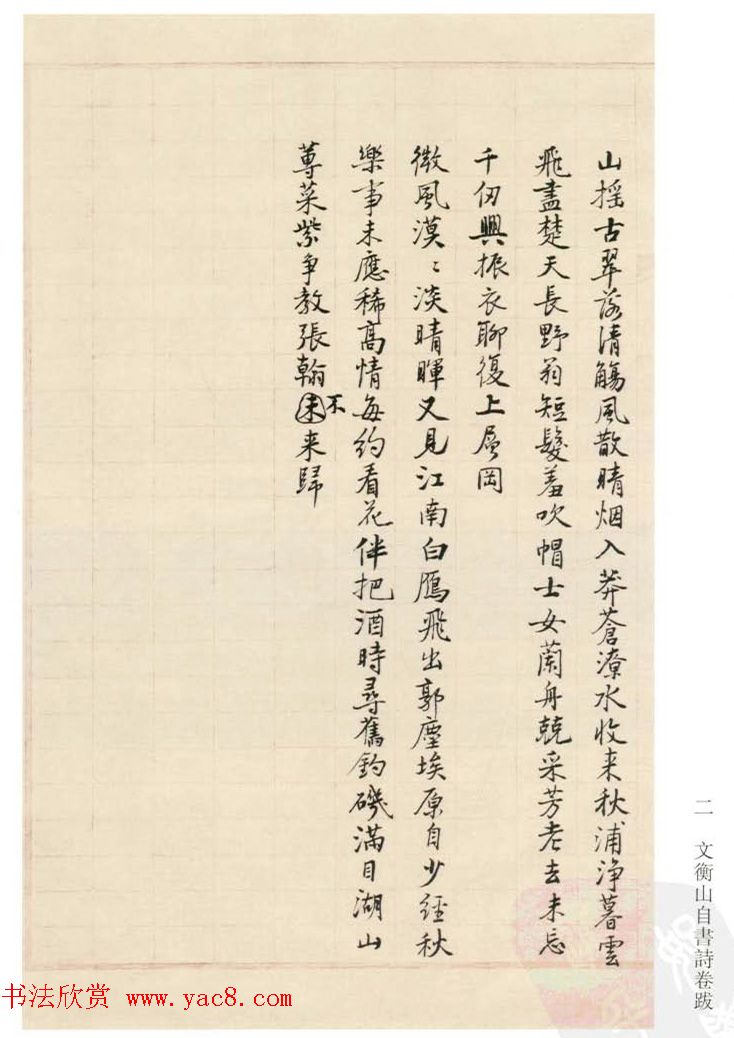 山摇古翠落清觴風散晴烟入莽蒼潦水收来秋浦浄暮雲
飛盡楚天長野翁短髮羞吹帽士女蘭舟競采芳老去未忘
千仞興振衣聊復上層岡
微風漠〻淡晴暉又見江南白鴈飛出郭塵埃原自少經秋
樂事未應稀高情每約看花伴把酒時尋舊釣磯滿目湖山
蓴菜紫争教張翰未不来歸
二 文衡山自書詩卷跋
书法欣赏 www.yac8.com